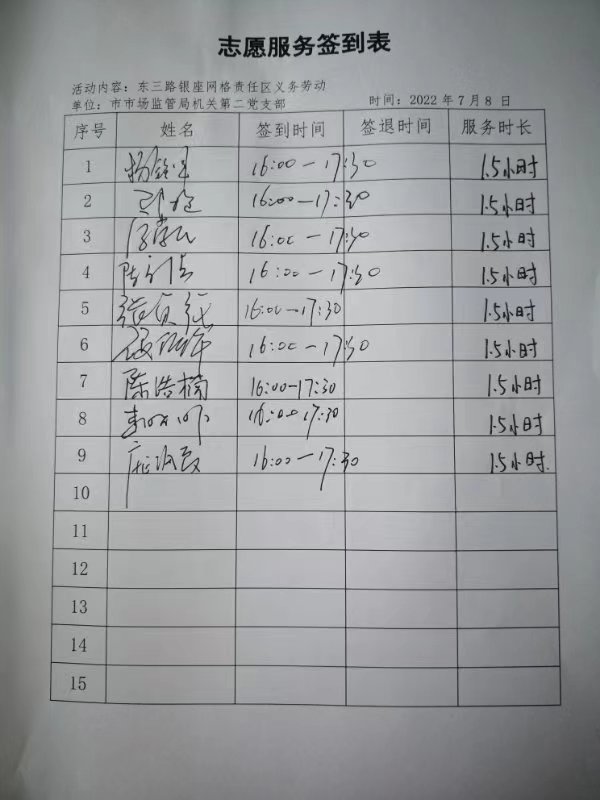 志愿服务签到表
活动内容：东三路银座网格责任区义务劳动
单位：市市场监管局机关第二党支部 时间：2022年7月8日
序号 姓名 签到时间 签退时间 服务时长
1 16:00-17:30 1.5小时
2 16:00-17:30 1.5小时
3 16:00-17:30 1.5小时
4 16:00-17:30 1.5小时
5 16:00-17:30 1.5小时
6 16:00-17:30 1.5小时
7 陈浩楠 16:00-17:30 1.5小时
8 16:00-17:30 1.5小时
9 16:00-17:30 1.5小时
10
11
12
13
14
15